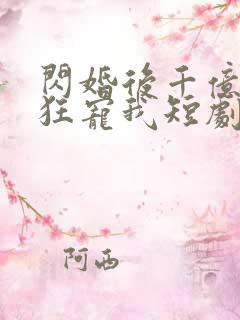 閃婚後千億
狂寵我短劇
阿西